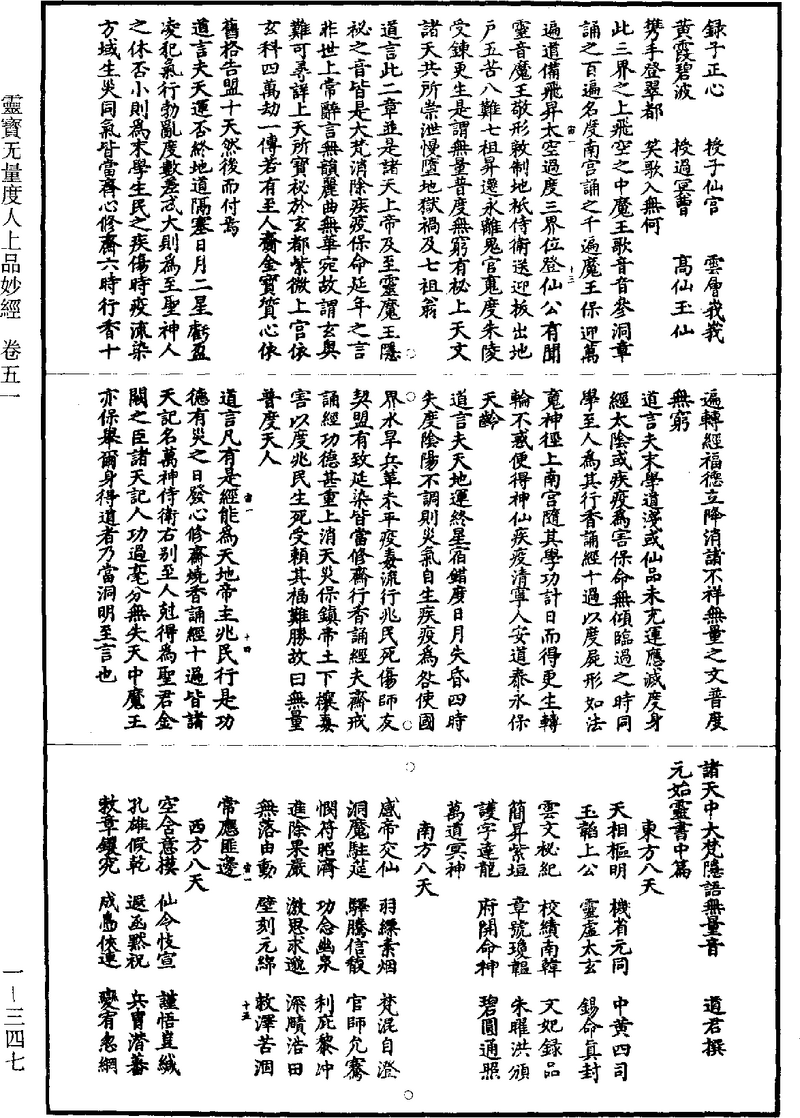 靈寶无量度人上品妙經 卷五一
一—三四七
錄子正心 校子仙官 雲層峩峩
黃霞碧波 校過冥曹 高仙玉仙
携手登翠都 笑歌入無何
此三界之上飛空之中魔王歌音音參洞章
誦之百遍名度南宮誦之千遍魔王保迎萬
遍道備飛昇太空過度三界位登仙公有聞
靈音魔王敬形敕制地祇侍衛送迎拔出地
戶五苦八難七祖昇遷永離鬼官魂度朱陵
受鍊更生是謂無量普度無窮有秘上天文
諸天共所崇泄慢墮地獄禍及七祖翁
道言此二章並是諸天上帝及至靈魔王隱
祕之音皆是大梵消除疾疫保命延年之言
非世上常辭言無韻麗曲無華宛故謂玄奧
難可尋詳上天所寶祕於玄都紫微上宮依
玄科四萬劫一傳若有至人齎金寶質心依
舊格告盟十天然後而付焉
道言夫天運否終地道隔塞日月二星虧盈
凌犯氣行勃亂度數差忒大則為至聖神人
之休否小則為末學生民之疾傷時疫流染
方域生災同氣皆當齊心修齋六時行香十
遍轉經福德立降消諸不祥無量之文普度
無窮
道言夫末學道淺或仙品未充運應滅度身
經太陰或疾疫為害保命無傾臨過之時同
學至人為其行香誦經十過以度屍形如法
魂神徑上南宮隨其學功計日而得更生轉
輪不惑便得神仙疾疫清寧人安道泰永保
天齡
道言夫天地運終星宿錯度日月失昏四時
失度陰陽不調則災氣自生疾疫為咎使國
界水旱兵革未平疫毒流行兆民死傷師友
契盟有致延染皆當修齋行香誦經夫齋戒
誦經功德甚重上消天災保鎮帝土下禳毒
害以度兆民生死受賴其福難勝故曰無量
普度天人
道言凡有是經能為天地帝主兆民行是功
德有災之日發心修齋燒香誦經十過皆諸
天記名萬神侍衛右別至人尅得為聖君金
闕之臣諸天記人功過毫分無失天中魔王
亦保舉爾身得道者乃當洞明至言也
諸天中大梵隱語無量音 道君撰
元始靈書中篇
東方八天
天相樞明 機省元同 中黃四司
玉韶上公 靈虛太玄 錫命真封
雲文秘紀 校績南韓 文妃錄品
簡昇紫垣 章號瓊韞 朱曜洪頒
護字達龍 府開命神 碧圓通照
萬道冥神
南方八天
感帝交仙 羽縹素烟 梵混自澄
洞魔駐莚 驛騰信馥 官師允騫
憫符昭濟 功念幽泉 利庇黎冲
進除果嚴 激思求邈 深賾浩田
無落由動 壁刻元綿 敕澤苦涸
常應匪邊
西方八天
空含意撲 仙令忮宣 謹悟真緘
孔雄假乾 遐函黙祝 兵胄潛蕃
敕章鑁究 成喬俠連 變宥恚網